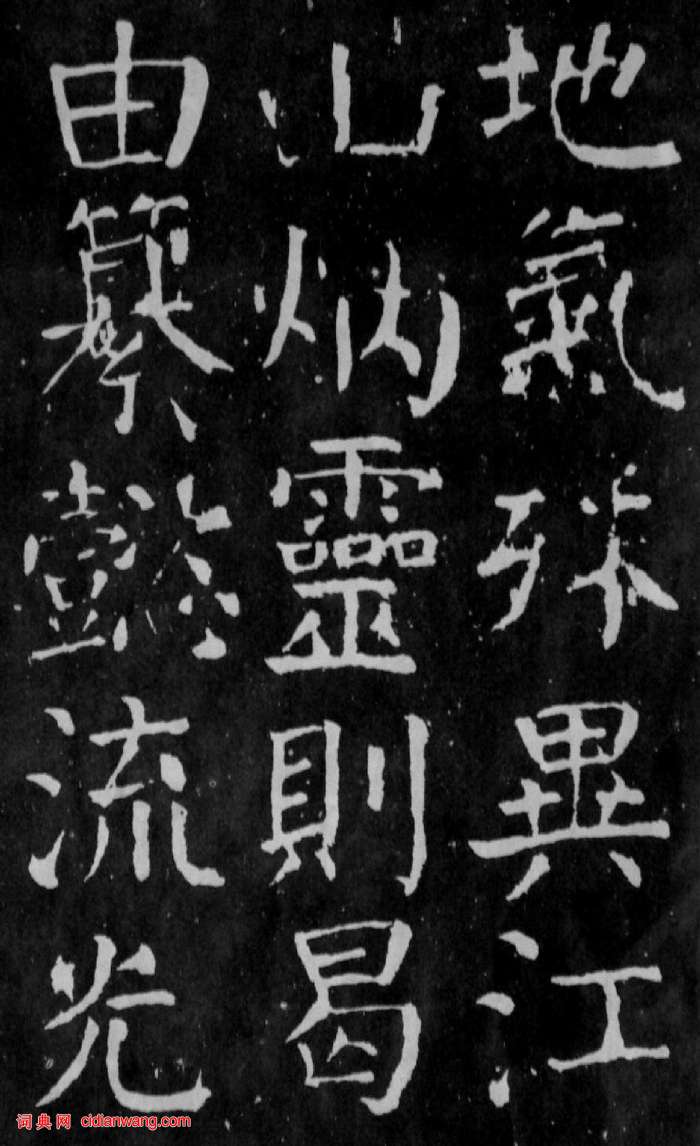 地氣殊異江
山炳靈則曷
由纂懿流光
词典网 cidianwang.com